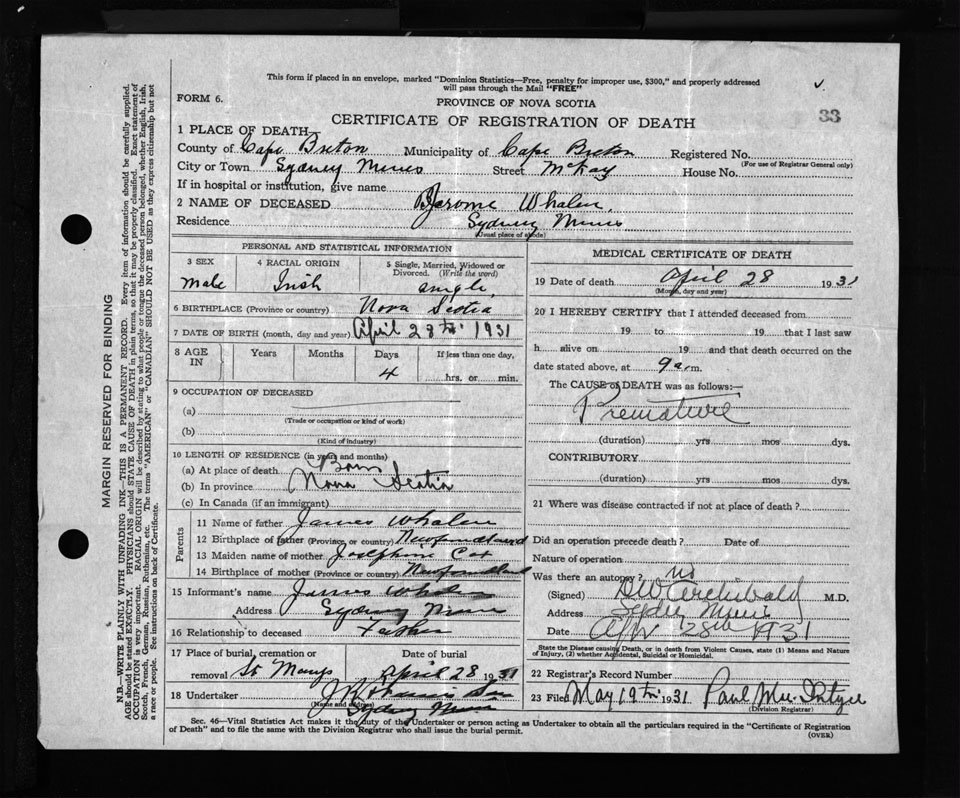 This form if placed in an envelope, marked "Dominion Statistics—Free, penalty for improper use, $300," and properly addressed
will pass through the Mail "FREE"
FORM 6.
PROVINCE OF NOVA SCOTIA
33
CERTIFICATE OF REGISTRATION OF DEATH
1 PLACE OF DEATH
County of Cape Breton Municipality of Cape Breton Registered No.
(For use of Registrar General only)
City or Town Sydney Mines Street McKay House No.
If in hospital or institution, give name
2 NAME OF DECEASED Jerome Whalen
Residence Sydney Mines
(Usual place of abode)
PERSONAL AND STATISTICAL INFORMATION
3 SEX 4 RACIAL ORIGIN 5 Single, Married, Widowed or
Divorced. (Write the word)
male Irish single
6 BIRTHPLACE (Province or country) Nova Scotia
7 DATE OF BIRTH (month, day and year) April 28th 1931
8 AGE IN Years Months Days If less than one day,
4 hrs. or min.
9 OCCUPATION OF DECEASED
(a)
(Trade or occupation or kind of work)
(b)
(Kind of industry)
10 LENGTH OF RESIDENCE (in years and months)
(a) At place of death Born
(b) In province Nova Scotia
(c) In Canada (if an immigrant)
Parents
11 Name of father James Whalen
12 Birthplace of father (Province or country) Newfoundland
13 Maiden name of mother Josephine
14 Birthplace of mother (Province or country) Newfoundland
15 Informant's name James Whalen
Address Sydney Mines
16 Relationship to deceased Father
17 Place of burial, cremation or Date of burial
removal St Marys April 28 1931
18 Undertaker
(Name and address)
Sydney Mines
MEDICAL CERTIFICATE OF DEATH
19 Date of death April 28 1931
(Month, day and year)
20 I HEREBY CERTIFY that I attended deceased from
19 to 19 that I last saw
h alive on 19 and that death occurred on the
date stated above, at 9 a.m.
The CAUSE of DEATH was as follows:—
Premature
(duration) yrs mos dys.
CONTRIBUTORY
(duration) yrs mos dys.
21 Where was disease contracted if not at place of death?
Did an operation precede death? Date of
Nature of operation
Was there an autopsy? no
(Signed) Archibald M.D.
Address Sydney Mines
Date Apr 28th 1931
State the Disease causing Death, or in death from Violent Causes, state (1) Means and
Nature of Injury, (2) whether Accidental, Suicidal or Homicidal.
22 Registrar's Record Number
23 Filed May 19th 1931 Paul
(Division Registrar)
Sec. 46—Vital Statistics Act makes it the duty of the Undertaker or person acting as Undertaker to obtain all the particulars required in the "Certificate of Registration
of Death" and to file the same with the Division Registrar who shall issue the burial permit.
(OVER)
MARGIN RESERVED FOR BINDING
N.B.—WRITE PLAINLY WITH UNFADING INK—THIS IS A PERMANENT RECORD. Every item of information should be carefully supplied.
AGE should be stated EXACTLY. PHYSICIANS should STATE CAUSE OF DEATH in plain terms, so that it may be properly classified. Exact statement of
OCCUPATION is very important. RACIAL ORIGIN will be described by stating to what people or tongue the deceased person belonged, whether English, Irish,
Scotch, French, German, Russian, Ruthenian, etc. The terms "AMERICAN" or "CANADIAN" SHOULD NOT BE USED as they express citizenship but not
a race or people. See instructions on back of Certificate.